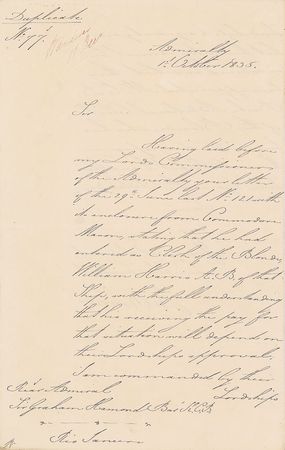 Duplicate
No. 77
Admiralty
1st October 1835.
Sir
Having laid before
my Lords Commissioners
of the Admiralty your letter
of the 19th June last No. 121 with
its enclosure from Commodore
Mason, stating that he had
entered as Clerk of the Blonde,
William Harris A.B. of that
Ship, with the full understanding
that his receiving the pay for
that situation will depend on
their Lordships approval
I am commanded by their
Lordships
Rear Admiral
Sir Graham Hamond Bart K.C.B
Rio Janeiro